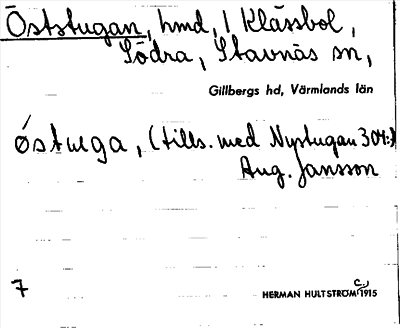 Öststugan, hmd, i Klässbol,
Södra, Stavnäs sn,
Gillbergs hd, Värmlands län
østuga, (tills. med Nystugan 304:)
Aug. Jansson
7
HERMAN HULTSTRÖM C:1915